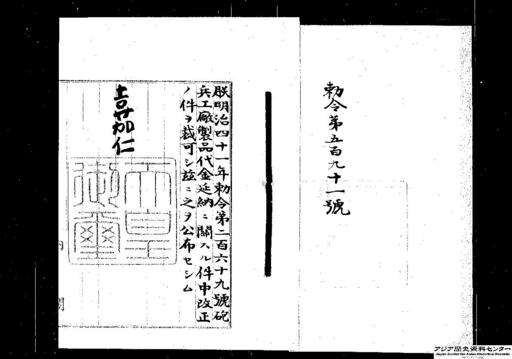 勅令第五百九十一號
朕明治四十一年勅令第二百六十九號砲
兵工廠製品代金延納ニ關スル件中改正
ノ件ヲ裁可シ玆ニ之ヲ公布セシム
嘉仁
天皇御璽
アジア歴史資料センター
Japan Center for Asian Historical Records